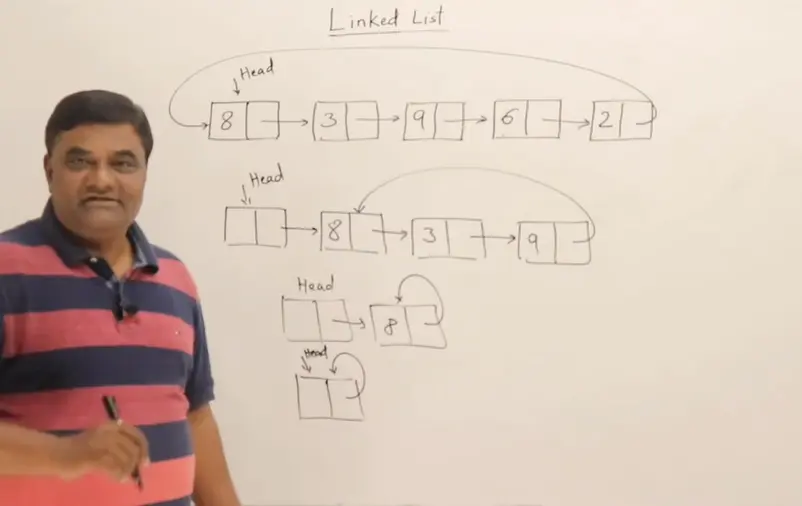 Linked List
Head
8 3 9 6 2
Head
8 3 9
Head
8
Head